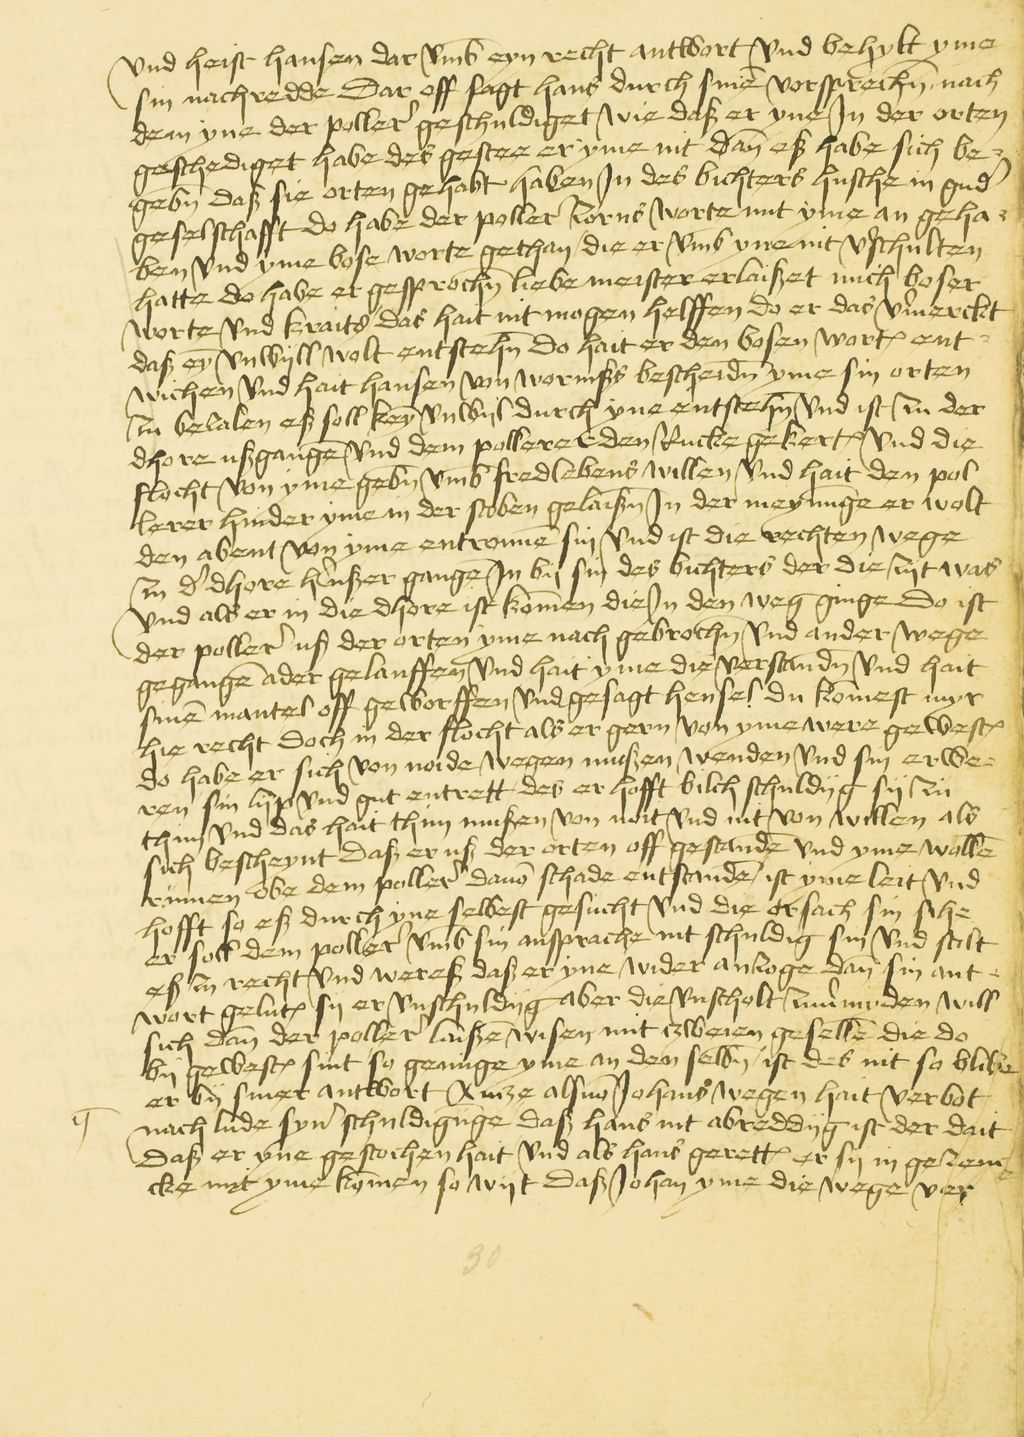 vnd heist hansen dar vmb eyn recht antwort vnd behylt yme
sin nachredde Dar off sagt hans durch sinē vorsprechn nach
dem yne der poller geschuldiget wie daß er yne In der orten
geschediget habe des gestee er yme nit dan̄ eß habe sich be-
gebn̄ daß sie orten gehabt haben In des bichters husche in gud
geselschafft do habe der poller zorns worte mit yme an geha-
ben vnd yme bose worte gethan die er vmb yne nit vschulten
hatte do habe er gesprochn̄ liebe meister erlaißet mich boser
worte vnd kraits das hait nit mogen helffen do er das vmerckt
daß ey vnwyll wolt entstehn̄ Do hait er den bosen wort ent-
wichen vnd hait hansen von wormßs bescheidn̄ yme sin orten
zu bezalen eß soll key vnwyl durch yne entstehn̄ vnd ist zu der
dhore ußgangē vnd dem pollerer den Rucke gekert vnd die
flocht von yme gebn̄ vmb fredlebens willen vnd hait den pol
lerer hinder yme in der stoben gelaißn̄ In der meynunge er wolt
den abent von yme entronnē sin vnd ist die rechten wege
zu d dhore hußer gange In by sin des bichters der die zyt was
vnd als er in die dhore ist kom̄en die In den weg ginge Do ist
der poller uß der orten yme nach gebrochn̄ vnd ander wege
gegangē ader gelauffen vnd hait yme die verstandn̄ vnd hait
sinē mantel off geworffen vnd gesagt hensel du kom̄est myr
hie recht doch in der flocht als er gern von yme were gewest
do habe er sich von noide wegen mußen wenden vnd sin erwe-
ren sin lyp vnd gut entrett des er hofft bilch schuldiig sij zu
thun vnd das hait thun mußen von noit vnd nit von willen als
sich bescheynt Daß er uß der orten off gestandē vnd yme wollē
rumen obe dem poller dauō schade entstandē ist yme leit vnd
hofft so eß durch yne selbest gesucht vnd die orsach sin sihe
er soll dem poller vmb sin ansprache nit schuldig sin vnd stilt
eß zu recht vnd wereß daß er yne wider anzoge dan̄ sin ant-
wort gelut sij er vnschuldijg aber die vnscholt will
sich dan̄ der poller laiße wisen mit czweien gesellē die do
by gewest sint so genuge yme an den selbn̄ ist des nit so blibe
er by siner antwort henze Johans wegen hait verbot
nach lude syn schuldigūge daß hans nit abreddijg ist der dait
daß er yne gestochen hait vnd als hans gerett er sij in
cke mit yme kom̄en so wyt daß Johan yme die wege ver
30